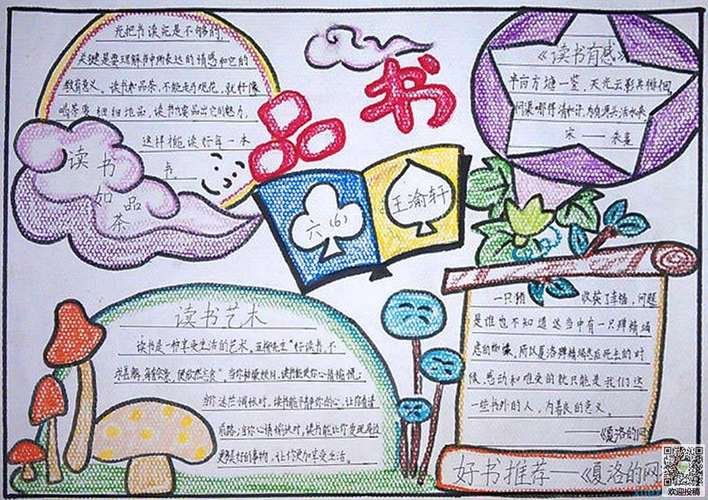 死把书读完是不够的,
关键是要理解书中所表达的情感和它的
教育意义。读书如品茶,不能走马观花,就好像
喝茶要细细地品,读书也要品出它的魅力,
这样才能读好每一本
书
读书
如品
茶
品书
六(6)
王渝轩
《读书有感》
半亩方塘一鉴,天光云影共徘徊
问渠哪得清如许,为有源头活水来
宋——朱熹
读书艺术
读书是一种享受生活的艺术。五柳先生"好读书,不
求甚解,每有会意,便欣然忘食"。
读书能使你心情愉悦。
读书能平静你的心,让你看清
前路,当你心情愉快时,读书能让你发现身边
更美好的事物,让你更加享受生活。
一只猪 收获了幸福,问题
是谁也不知道这当中有一只殚精竭
虑的蜘蛛。所以夏洛殚精竭虑后死去的时
候,感动和难受的就只能是我们这
一些书外的人,为善良的意义。
——《夏洛的网》
好书推荐——《夏洛的网》
欢迎投稿